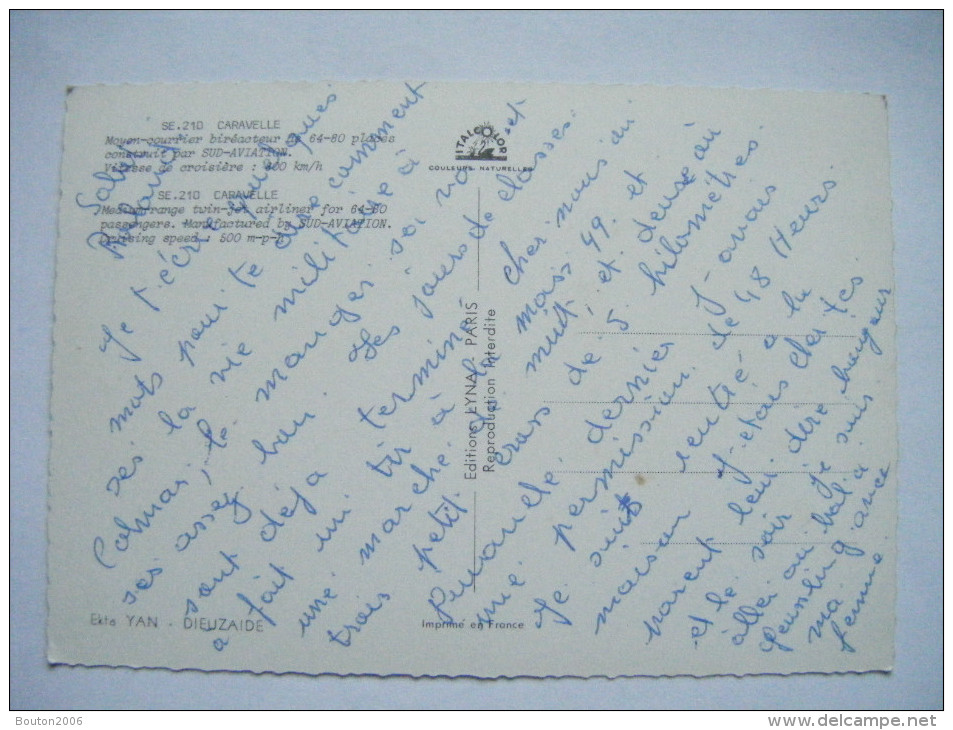 SE.210 CARAVELLE
Moyen-courrier biréacteur de 64-80 places
construit par SUD-AVIATION.
Vitesse de croisière : 800 km/h
SE.210 CARAVELLE
Medium-range twin-jet airliner for 64-80
passengers. Manufactured by SUD-AVIATION.
Cruising speed : 500 m-p-h
ITALCOLOR
COULEURS NATURELLES
Editions LYNA - PARIS
Reproduction Interdite
Ekta YAN - DIEUZAIDE
Imprimé en France
Salut
Je t'écri quelques
mots pour te dire comment
ses la vie militaire à
Colmar, le manger soi nos et
ses assez bon. Les jours de classes
sont déjà terminé cher nous on
a fait un tir à le mois 49 et
une marche de nuit et deuse où
trois petit cros de 5 kilomètres.
dernier J-avais
une permission de 48 Heurs.
Je suit rentré a la
maison J-etais cher tes
parent leur dire bonjour
et le soir je suis
aller au bal a
ma
femme.
Bouton2006
www.delcampe.net